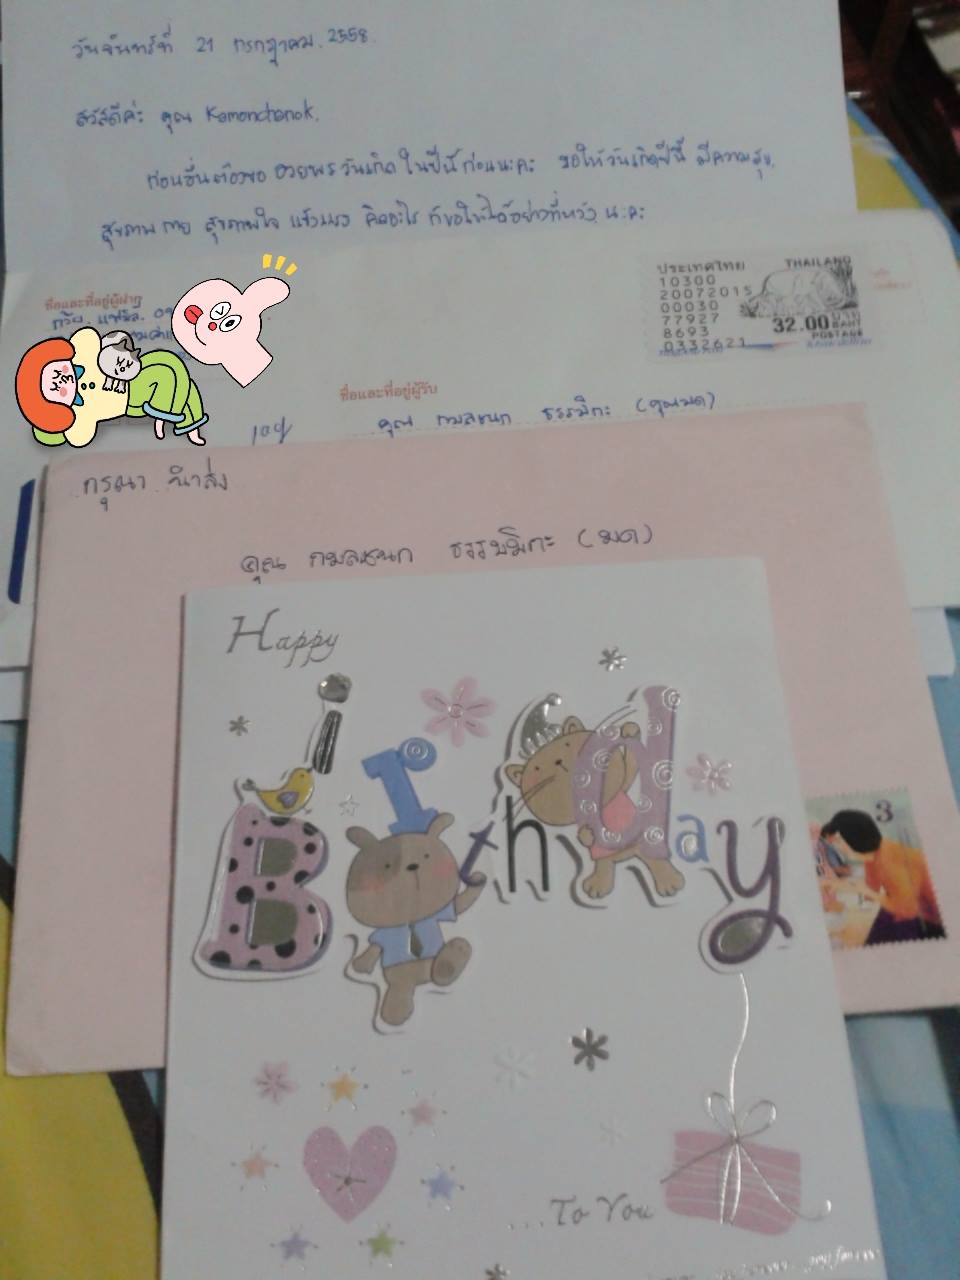 วันจันทร์ที่ 21 กรกฎาคม. 2558.
สวัสดีค่ะ คุณ Kamonchanok.
ก่อนอื่นต้องขอ อวยพรวันเกิด ในปีนี้ก่อนนะคะ ขอให้วันเกิดปีนี้ มีความสุข.
สุขภาพ กาย สุขภาพใจ แข็งแรง คิดอะไร ก็ขอให้ได้อย่างที่หวัง นะคะ
ชื่อและที่อยู่ผู้ฝาก
ประเทศไทย THAILAND
10300
20072015
00030
77927
8693
0332621
32.00 บาท
BAHT
POSTAGE
ชื่อและที่อยู่ผู้รับ
คุณ กมลชนก ธรรมิกะ (คุณมด)
กรุณา นำส่ง
คุณ กมลชนก ธรรมมิกะ (มด)
Happy
Birthday
3
...To You